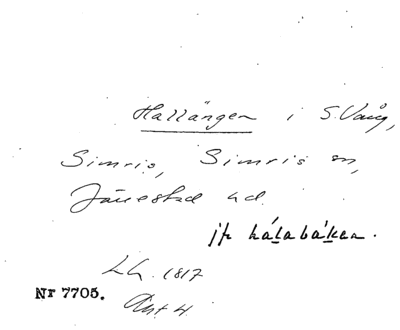 Hallängen i S. Vång,
Simris, Simris sn,
Järrestad hd.
jfr hálabákan.
Lh. 1817
Nr 7705. Akt. 4.